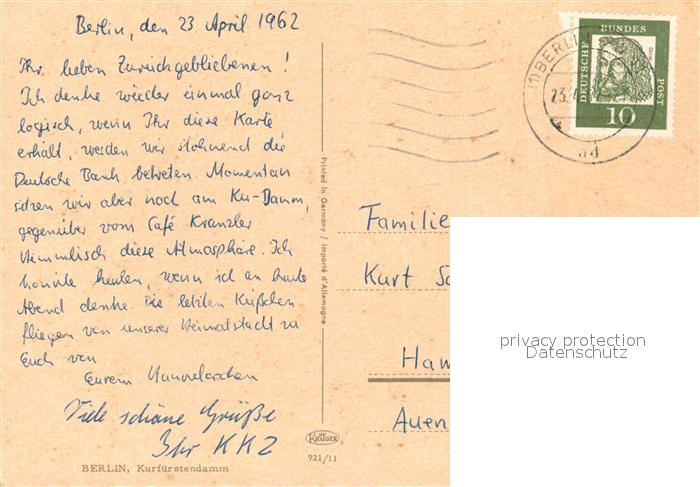 Berlin, den 23 April 1962
Ihr lieben Zurückgebliebenen!
Ich denke wieder einmal ganz
logisch, wenn Ihr diese Karte
erhält, werden wir stöhnend die
Deutsche Bank betreten. Momentan
sitzen wir aber noch am Ku-Damm,
gegenüber vom Café Kranzler
Himmlisch diese Atmosphäre. Ich
könnte heulen, wenn ich an heute
Abend denke. Die letzten Küßchen
fliegen von unserer Heimatstadt zu
Euch von
Eurem
Viele schöne Grüße
Ihr KKZ
BERLIN, Kurfürstendamm
Printed in Germany / Importé d'Allemagne
KRÜGER
921/11
DEUTSCHE BUNDESPOST
10
(1) BERLIN
23.
ad
Familie
Kurt Sc
Ham
Auen
privacy protection
Datenschutz